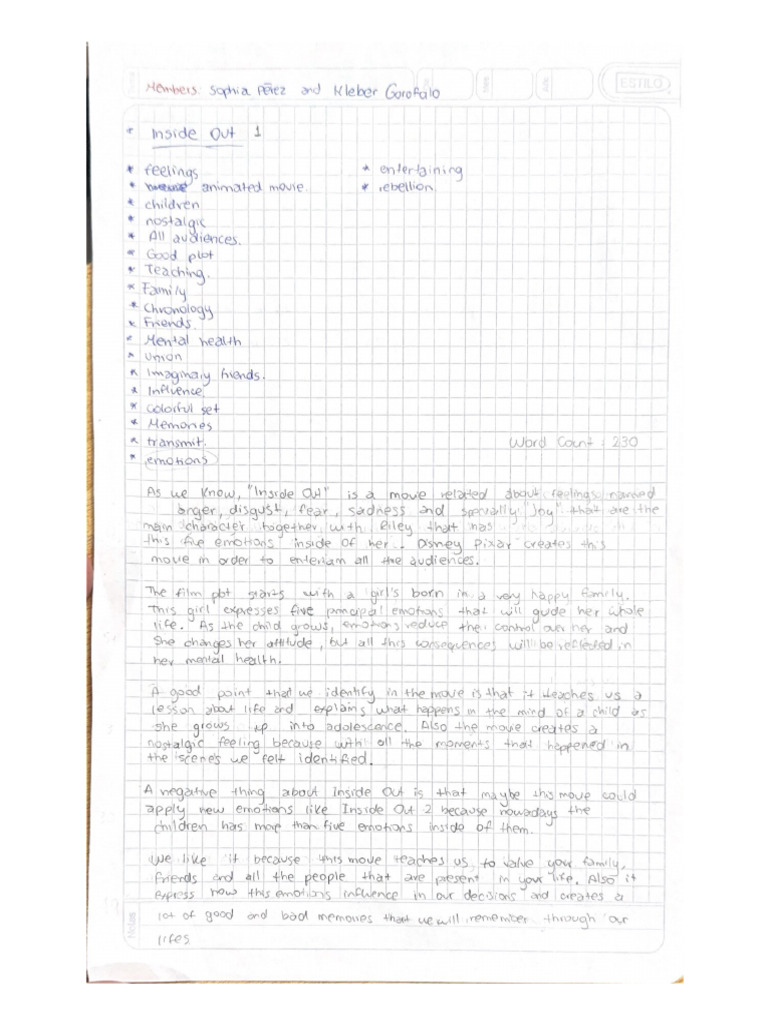 ESTILO
Members: Sophia Pérez and Kleber Garofalo
* Inside Out 1
* feelings
* animated movie.
* children
* nostalgic
* All audiences.
* Good plot
* Teaching.
* Family
* Chronology
* Friends.
* Mental health
* Union
* Imaginary friends.
* Influence
* Colorful set
* Memories
* transmit.
* emotions
* entertaining
* rebellion
Word Count: 230
As we know, "Inside Out" is a movie related about feelings named
anger, disgust, fear, sadness and specially "Joy" that are the
main character together with Riley that has
this five emotions inside of her.. Disney Pixar creates this
movie in order to entertain all the audiences.
The film plot starts with a girl's born in a very happy family.
This girl expresses five principal emotions that will guide her whole
life. As the child grows, emotions reduce their control over her and
she changes her attitude, but all this consequences will be reflected in
her mental health.
A good point that we identify in the movie is that it teaches us a
lesson about life and explains what happens in the mind of a child as
she grows up into adolescence. Also the movie creates a
nostalgic feeling because with all the moments that happened in
the scenes we felt identified.
A negative thing about Inside Out is that maybe this movie could
apply new emotions like Inside Out 2 because nowadays the
children has more than five emotions inside of them.
We like it because this movie teaches us to value your family,
friends and all the people that are present in your life. Also it
express how this emotions influence in our decisions and creates a
lot of good and bad memories that we will remember through our
lifes
Notes